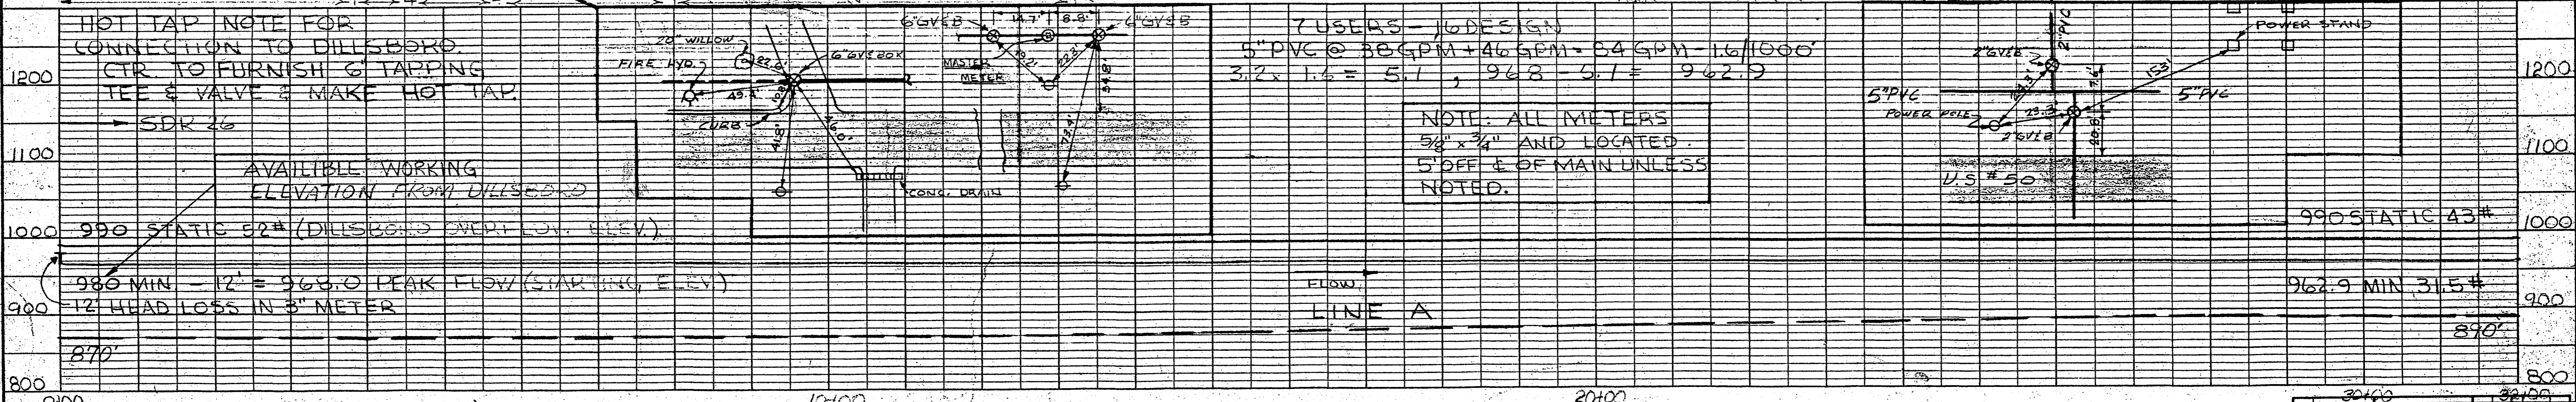 HOT TAP NOTE FOR
CONNECTION TO DILLSBORO.
CTR. TO FURNISH 6" TAPPING
TEE & VALVE & MAKE HOT TAP.
SDR 26
AVAILIBLE WORKING
ELEVATION FROM DILLSBORO
990 STATIC 52# (DILLSBORO OVERFLOW ELEV.)
980 MIN - 12' = 968.0 PEAK FLOW (STARTING ELEV.)
12' HEAD LOSS IN 3" METER
870'
1200
1100
1000
900
800
20" WILLOW
FIRE HYD.
6" GV & BOX
22.6'
49.4'
CURB
41.8'
46.0'
CONC. DRAIN
6" GV&B
14.7'
8.8'
6" GV&B
MASTER
METER
22.2'
54.8'
73.4'
7 USERS - 16 DESIGN
5" PVC @ 38 GPM + 46 GPM = 84 GPM - 1.6/1000'
3.2 x 1.6 = 5.1 , 968 - 5.1 = 962.9
NOTE: ALL METERS
5/8" x 3/4" AND LOCATED
5' OFF ℄ OF MAIN UNLESS
NOTED.
FLOW
LINE A
2" PVC
2" GV&B
POWER STAND
153'
5" PVC
5" PVC
POWER POLE
23.3'
2" GV&B
20.8'
U.S. #50
990 STATIC 43#
962.9 MIN 31.5#
890'
1200
1100
1000
900
800
0+00
10+00
20+00
30+00
32+00